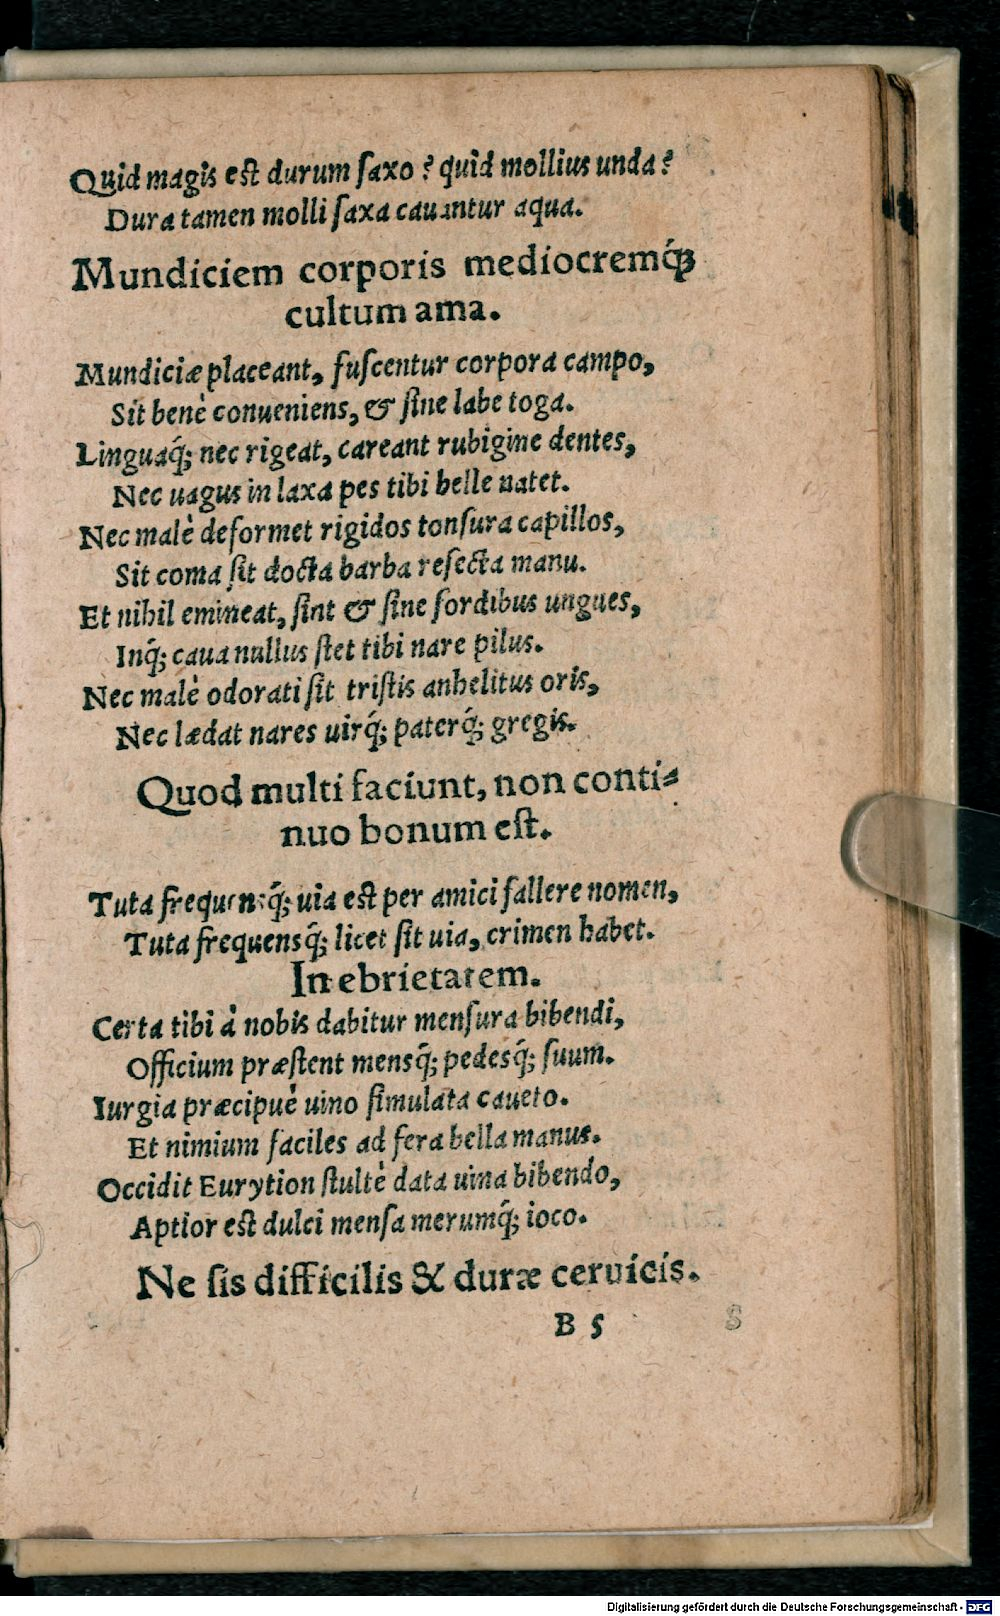 Quid magis est durum ſaxo? quid mollius unda?
Dura tamen molli ſaxa cauantur aqua.
Mundiciem corporis mediocremq́ꝫ
cultum ama.
Mundiciæ placeant, fuſcentur corpora campo,
Sit benè conueniens, & ſine labe toga.
Linguaq́; nec rigeat, careant rubigine dentes,
Nec uagus in laxa pes tibi belle natet.
Nec malè deformet rigidos tonſura capillos,
Sit coma ſit docta barba reſecta manu.
Et nihil emineat, ſint & ſine ſordibus ungues,
Inq́; caua nullus ſtet tibi nare pilus.
Nec malè odorati ſit triſtis anhelitus oris,
Nec lædat nares uirq́; paterq́; gregis.
Quod multi faciunt, non conti⸗
nuo bonum eſt.
Tuta frequensq́; uia est per amici fallere nomen,
Tuta frequensq́; licet ſit uia, crimen habet.
In ebrietatem.
Certa tibi à nobis dabitur menſura bibendi,
Officium præſtent mensq́; pedesq́; ſuum.
Iurgia præcipuè uino ſimulata caueto.
Et nimium faciles ad fera bella manus.
Occidit Eurytion ſtultè data uina bibendo,
Aptior est dulci menſa merumq́; ioco.
Ne ſis difficilis & duræ ceruicis.
B 5
Digitalisierung gefördert durch die Deutsche Forschungsgemeinschaft - DFG